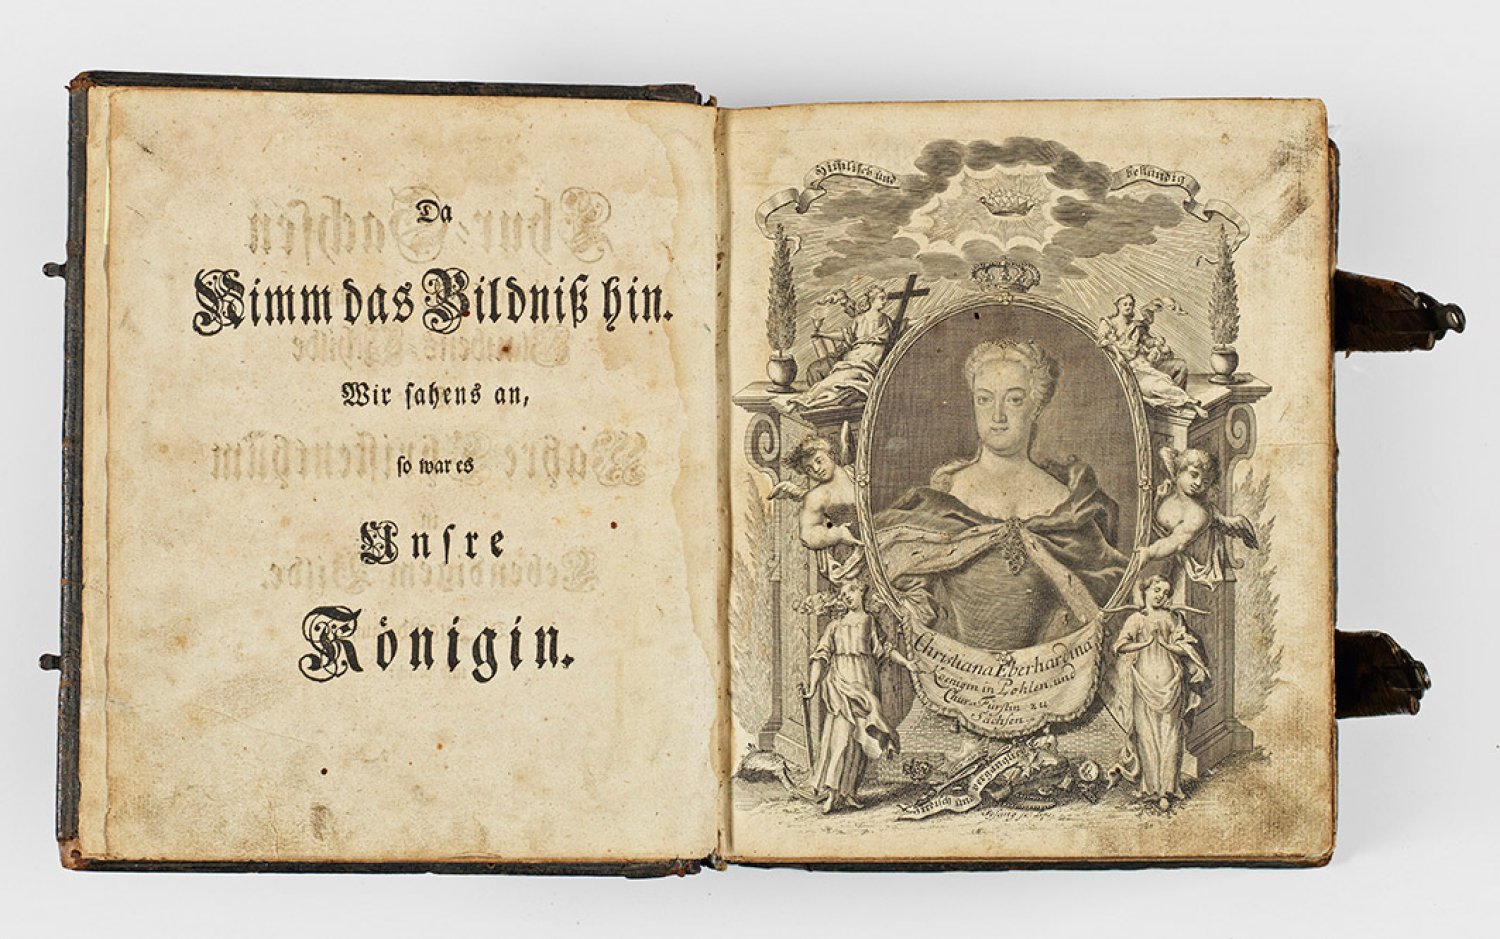 Da
Nimm das Bildniß hin.
Wir sahens an,
so war es
Unsre
Königin.
Himlisch und
beständig
Christiana Eberhardina
Koenigin in Pohlen, und
Chur-Fürstin zu
Sachsen.
Irrdisch und vergänglich